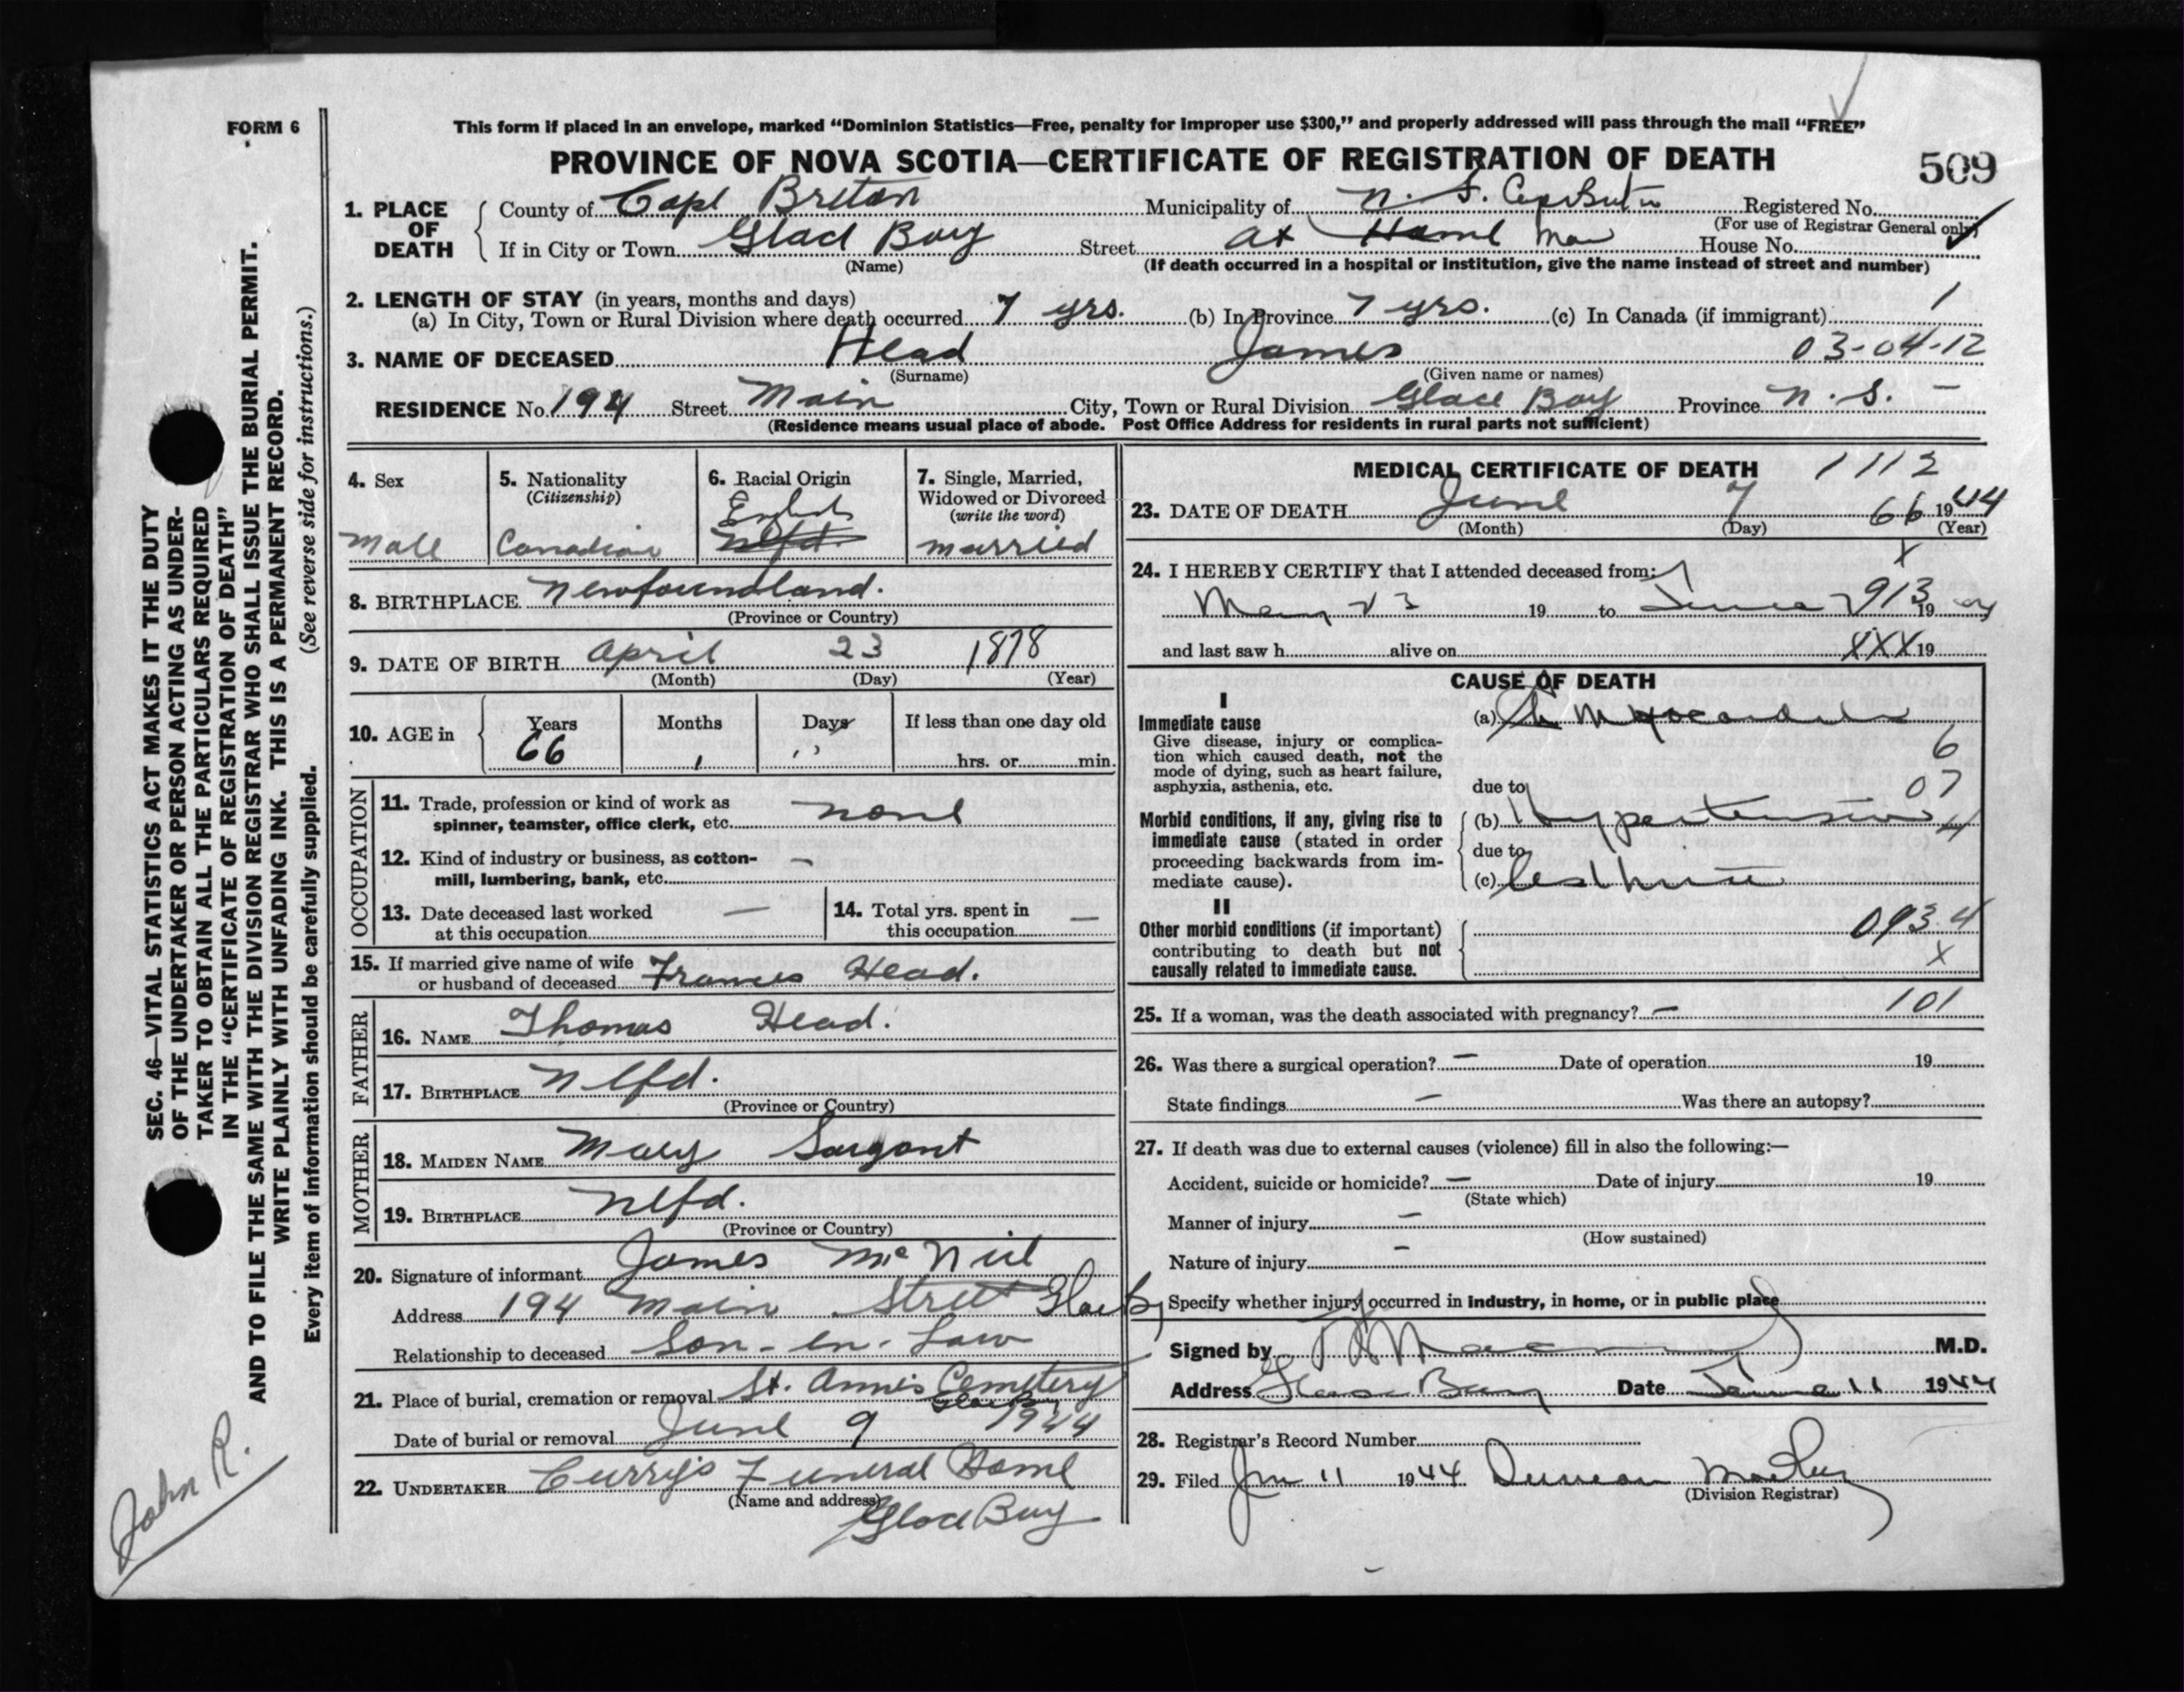 FORM 6
This form if placed in an envelope, marked “Dominion Statistics—Free, penalty for improper use $300,” and properly addressed will pass through the mail “FREE”
PROVINCE OF NOVA SCOTIA—CERTIFICATE OF REGISTRATION OF DEATH
509
1. PLACE OF DEATH
County of Cape Breton Municipality of N. S. Registered No.
(For use of Registrar General only)
If in City or Town Glace Bay Street at Home Main House No.
(Name) (If death occurred in a hospital or institution, give the name instead of street and number)
2. LENGTH OF STAY (in years, months and days)
(a) In City, Town or Rural Division where death occurred 7 yrs. (b) In Province 7 yrs. (c) In Canada (if immigrant) 1
3. NAME OF DECEASED Head James 03-04-12
(Surname) (Given name or names)
RESIDENCE No. 194 Street Main City, Town or Rural Division Glace Bay Province N. S. —
(Residence means usual place of abode. Post Office Address for residents in rural parts not sufficient)
4. Sex
Male
5. Nationality
(Citizenship)
Canadian
6. Racial Origin
English
Nfld.
7. Single, Married,
Widowed or Divorced
(write the word)
married
8. BIRTHPLACE Newfoundland.
(Province or Country)
9. DATE OF BIRTH April 23 1878
(Month) (Day) (Year)
10. AGE in
Years Months Days If less than one day old
66 1 hrs. or min.
OCCUPATION
11. Trade, profession or kind of work as
spinner, teamster, office clerk, etc. none
12. Kind of industry or business, as cotton-
mill, lumbering, bank, etc. —
13. Date deceased last worked
at this occupation —
14. Total yrs. spent in
this occupation —
15. If married give name of wife
or husband of deceased Frances Head.
FATHER
16. NAME Thomas Head.
17. BIRTHPLACE Nfld.
(Province or Country)
MOTHER
18. MAIDEN NAME Mary Sargant
19. BIRTHPLACE Nfld.
(Province or Country)
20. Signature of informant James McNeil
Address 194 Main Street Glace Bay
Relationship to deceased Son-in-Law
21. Place of burial, cremation or removal St. Anne's Cemetery
Glace Bay
Date of burial or removal June 9 1944
22. UNDERTAKER Curry's Funeral Home
(Name and address)
Glace Bay
MEDICAL CERTIFICATE OF DEATH 1112
23. DATE OF DEATH June 7 66 1944
(Month) (Day) (Year)
X
24. I HEREBY CERTIFY that I attended deceased from:
May 23 19 to June 7 913 19 44
and last saw h alive on XXX 19
CAUSE OF DEATH
I
Immediate cause
Give disease, injury or complica-
tion which caused death, not the
mode of dying, such as heart failure,
asphyxia, asthenia, etc.
(a)
6
07
due to
Morbid conditions, if any, giving rise to
immediate cause (stated in order
proceeding backwards from im-
mediate cause).
(b) Hypertension 4
due to
(c)
II
Other morbid conditions (if important)
contributing to death but not
causally related to immediate cause.
093.4
X
25. If a woman, was the death associated with pregnancy? — 101
26. Was there a surgical operation? — Date of operation 19
State findings — Was there an autopsy?
27. If death was due to external causes (violence) fill in also the following:—
Accident, suicide or homicide? — Date of injury 19
(State which)
Manner of injury —
(How sustained)
Nature of injury —
Specify whether injury occurred in industry, in home, or in public place
Signed by M.D.
Address Glace Bay Date June 11 1944
28. Registrar's Record Number
29. Filed Jun 11 1944 Duncan
(Division Registrar)
SEC. 46—VITAL STATISTICS ACT MAKES IT THE DUTY
OF THE UNDERTAKER OR PERSON ACTING AS UNDER-
TAKER TO OBTAIN ALL THE PARTICULARS REQUIRED
IN THE “CERTIFICATE OF REGISTRATION OF DEATH”
AND TO FILE THE SAME WITH THE DIVISION REGISTRAR WHO SHALL ISSUE THE BURIAL PERMIT.
WRITE PLAINLY WITH UNFADING INK. THIS IS A PERMANENT RECORD.
Every item of information should be carefully supplied. (See reverse side for instructions.)
John R.